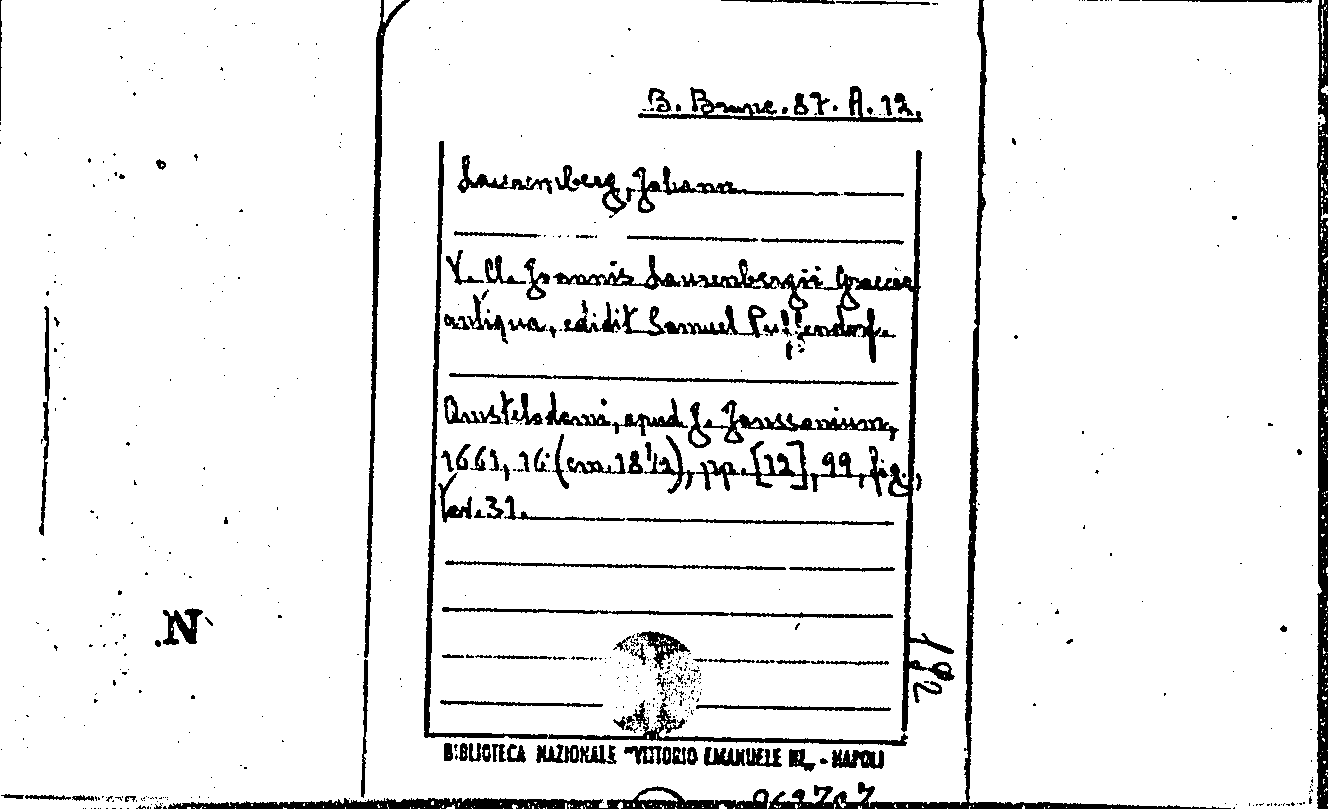 B. Branc. 87. A. 12.
Laurenberg, Johann
V. Cl. Joannis Laurenbergii Graecia
antiqua, edidit Samuel Puffendorf.
Amstelodami, apud J. Janssonium,
1661, 16 (cm. 18 1/2), pp. [12], 99, fig.,
tav. 31.
192
N.
BIBLIOTECA NAZIONALE "VITTORIO EMANUELE III" - NAPOLI